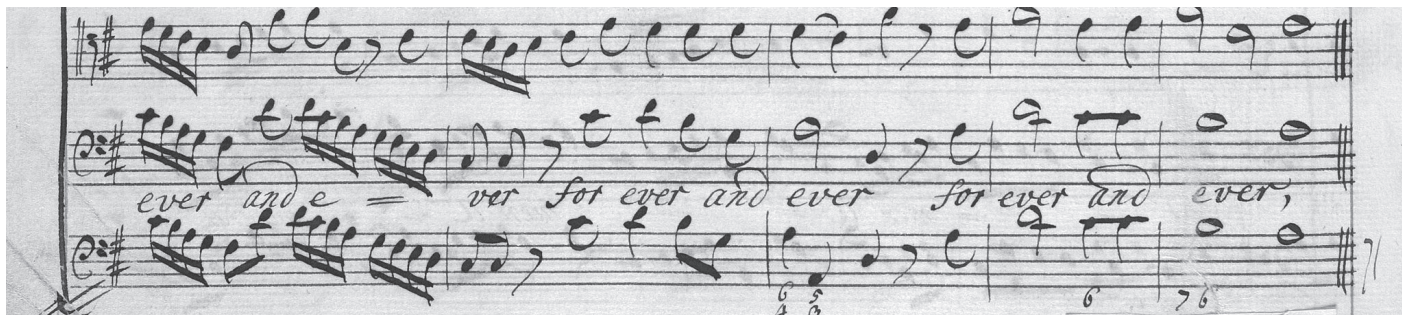 ever and e = ver for ever and ever for ever and ever,
6 5 6 7 6
4 3